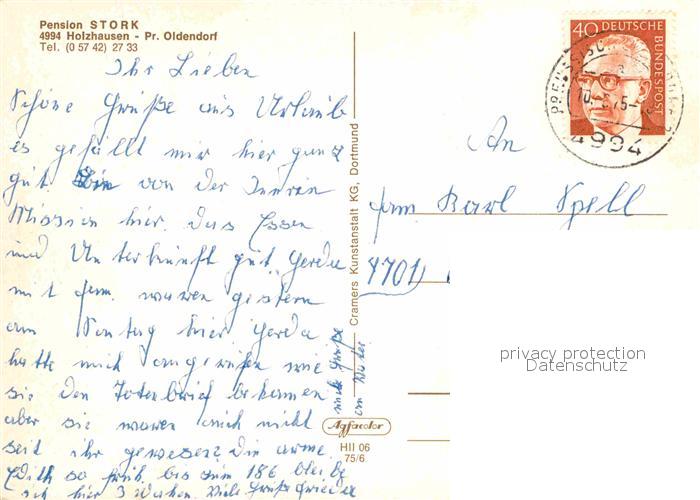 Pension STORK
4994 Holzhausen - Pr. Oldendorf
Tel. (0 57 42) 27 33
Ihr Lieben
Schöne Grüße aus Urlaub
es gefällt mir hier ganz
gut bin von der Inneren
Mission hier. das Essen
und Unterkunft gut, Gerda
mit fam. waren gestern
am Sontag hier Gerda
hatte mich angerufen wie
sie den Totenbrief bekamen
aber sie waren auch nicht
seit ihr gewesen? die arme
Edith so früh, bis zum 18.6 bleibe
ich hier 3 Wochen. Viele Grüße Frieda
auch Grüße
an
Cramers Kunstanstalt KG, Dortmund
Agfacolor
HII 06
75/6
40 DEUTSCHE BUNDESPOST
4994
An
fam. Karl Spell
4701
privacy protection
Datenschutz